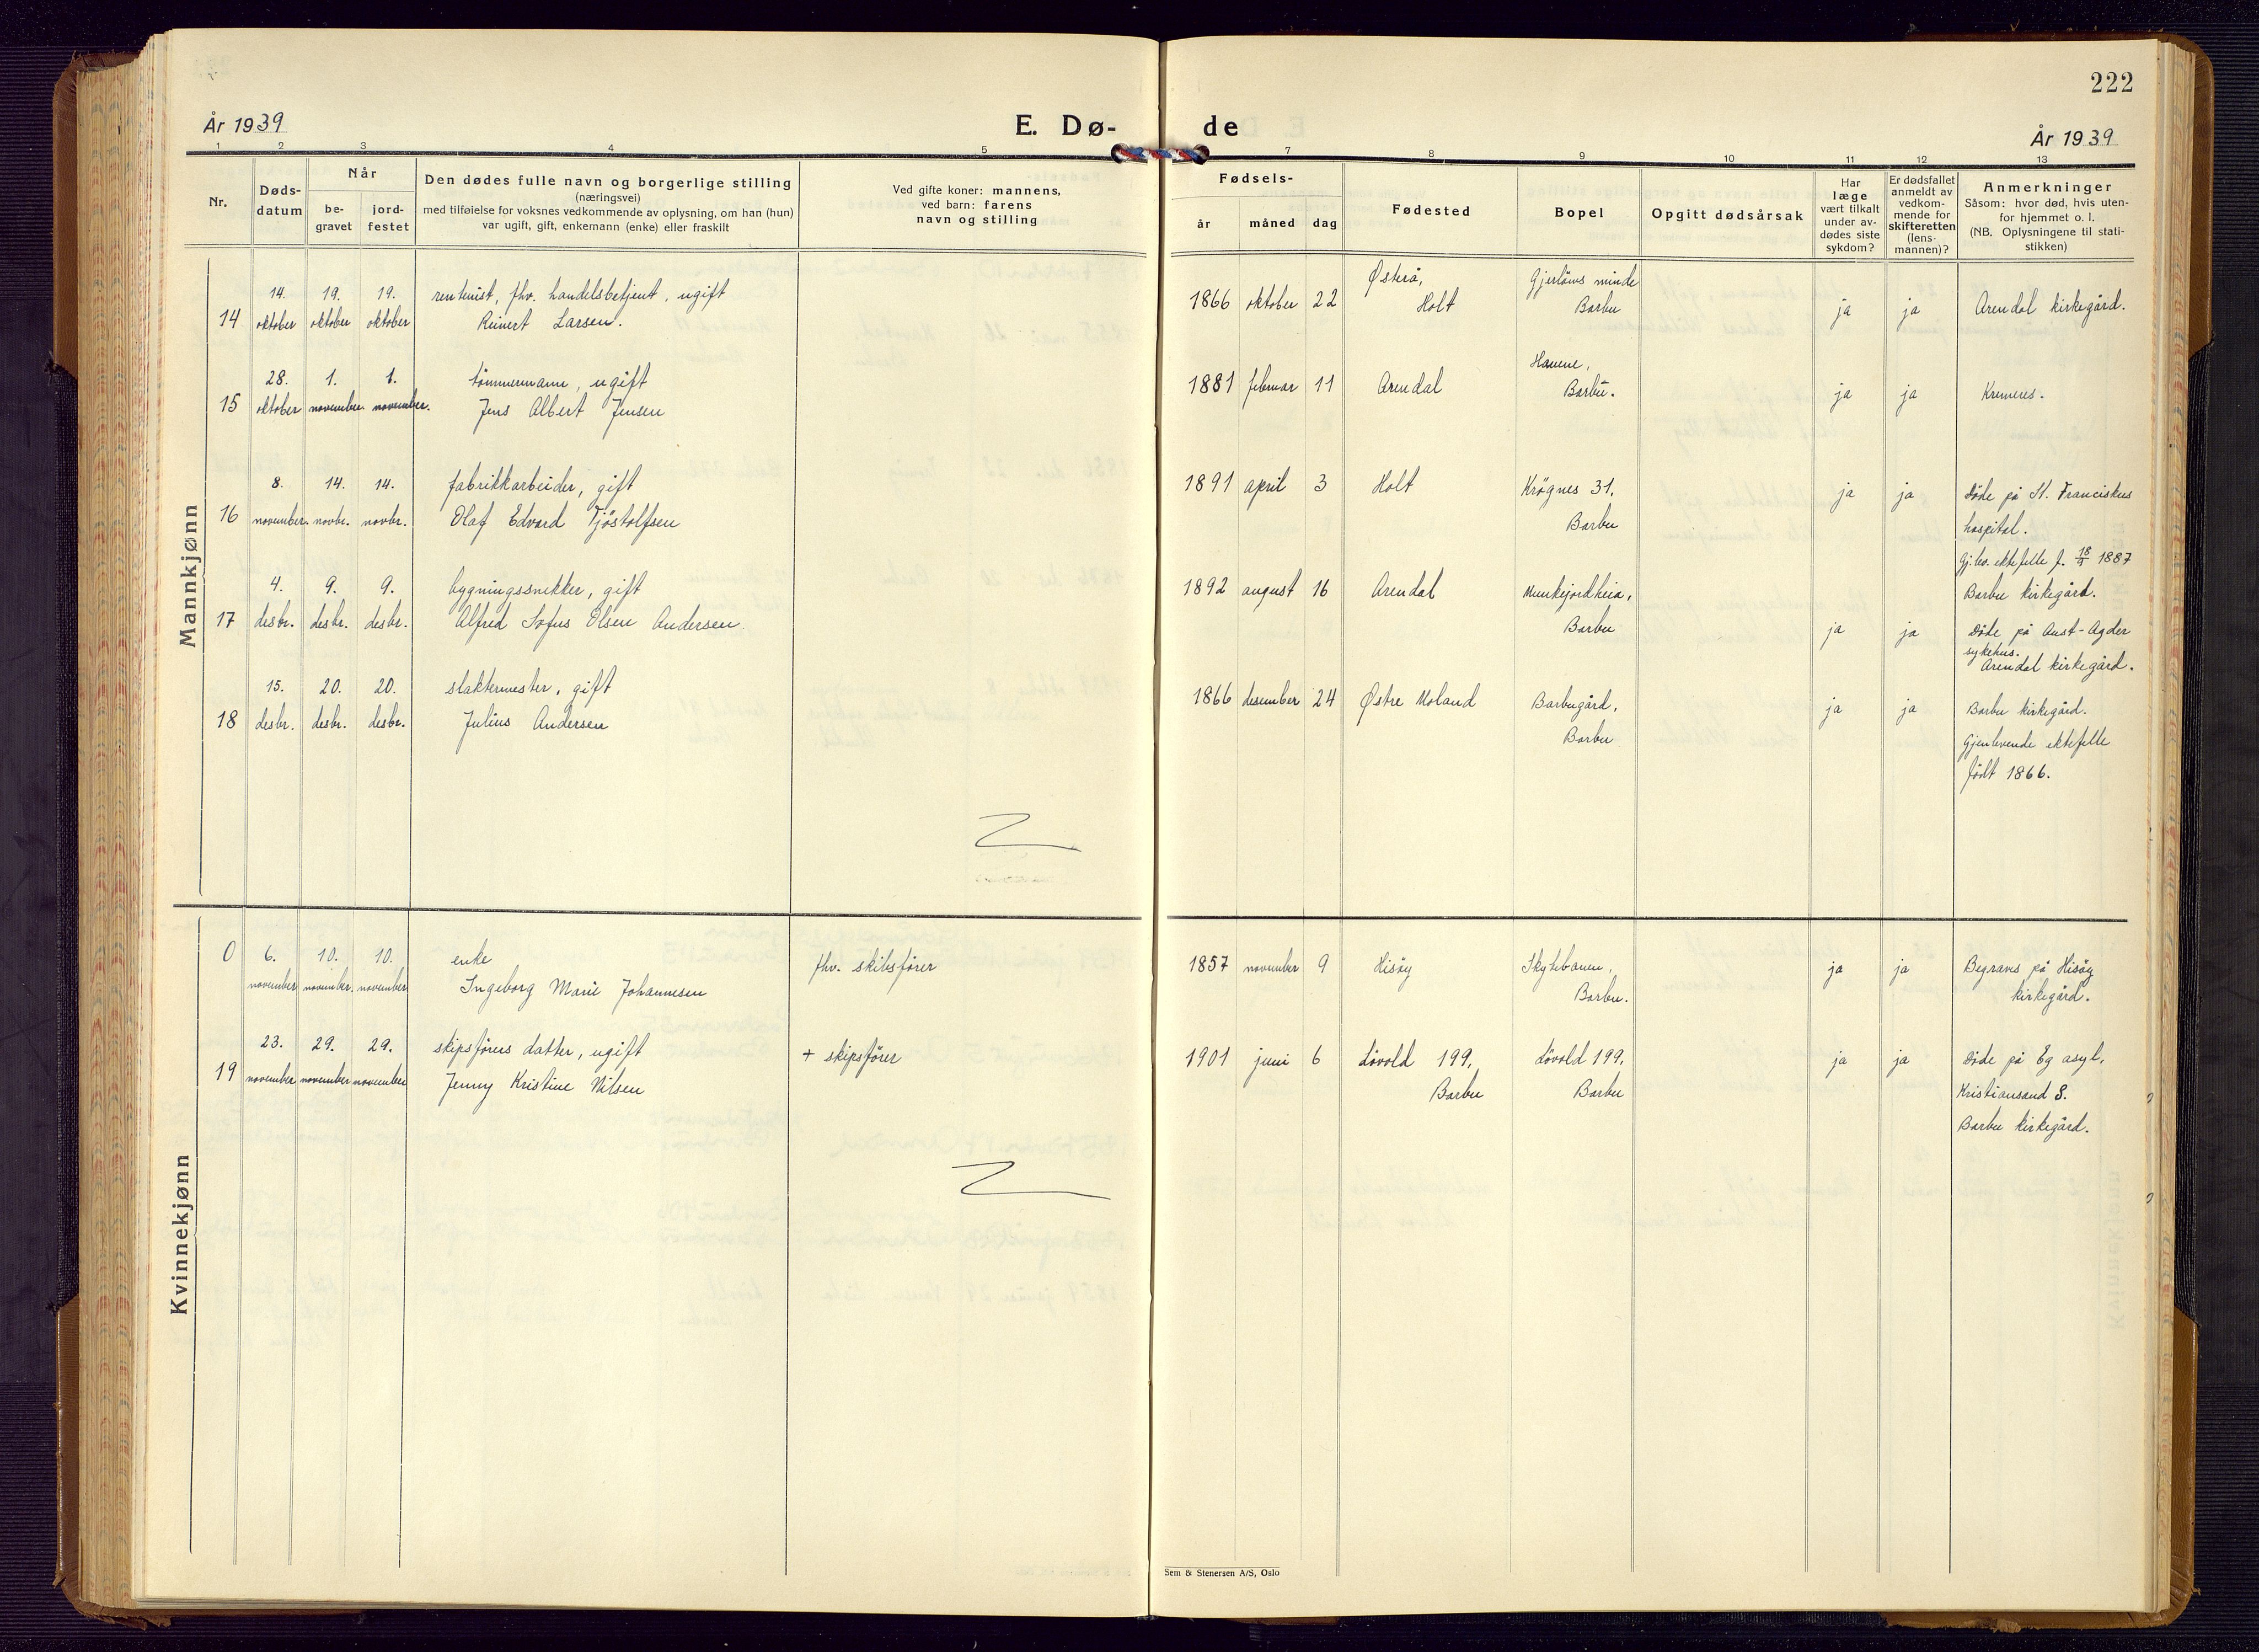 222
År 1939
E. Dø-
de
År 1939
1 2 3 4 5 7 8 9 10 11 12 13
Nr.
Døds-
datum
Når
be-
gravet
jord-
festet
Den dødes fulle navn og borgerlige stilling
(næringsvei)
med tilføielse for voksnes vedkommende av oplysning, om han (hun)
var ugift, gift, enkemann (enke) eller fraskilt
Ved gifte koner: mannens,
ved barn: farens
navn og stilling
Fødsels-
år
måned
dag
Fødested
Bopel
Opgitt dødsårsak
Har
læge
vært tilkalt
under av-
dødes siste
sykdom?
Er dødsfallet
anmeldt av
vedkom-
mende for
skifteretten
(lens-
mannen)?
Anmerkninger
Såsom: hvor død, hvis uten-
for hjemmet o. l.
(NB. Oplysningene til stati-
stikken)
Mannkjønn
14. 19. 19. rentenist, fhv. handelsbetjent, ugift
14 oktober oktober oktober Reinert Larsen.
1866 oktober 22
Østerå,
Holt
Gjerløws minde
Barbu
ja ja Arendal kirkegård.
28. 1. 1. tømmermann, ugift
15 oktober november november. Jens Albert Jensen
1881 februar 11 Arendal
Havene,
Barbu.
ja ja Kremeres.
8. 14. 14. fabrikkarbeider, gift
16 november. novbr. novbr. Olaf Edvard Tjøstolfsen
1891 april 3 Holt
Krøgnes 31,
Barbu
ja ja Døde på St. Franciskus
hospital.
Gj.lev. ektefelle f. 18/9 1887
Barbu kirkegård.
4. 9. 9. bygningssnekker, gift
17 desbr. desbr. desbr. Alfred Sofus Olsen Andersen
1892 august 16 Arendal
Munkejordheia,
Barbu
ja ja Døde på Aust-Agder
sykehus.
Arendal kirkegård.
15. 20. 20. slaktermester, gift
18 desbr. desbr. desbr. Julius Andersen
1866 desember 24 Østre Moland
Barbugård,
Barbu
ja ja Barbu kirkegård.
Gjenlevende ektefelle
født 1866.
Kvinnekjønn
0 6. 10. 10. enke fhv. skibsfører
november november. november Ingeborg Marie Johannesen
1857 november 9 Hisøy
Skytebanen,
Barbu.
ja ja Begraves på Hisøy
kirkegård.
23. 29. 29. skipsførers datter, ugift + skipsfører
19 november november november Jenny Kristine Nilsen
1901 juni 6 Løvold 199,
Barbu
Løvold 199,
Barbu
ja ja Døde på Eg asyl,
Kristiansand S.
Barbu kirkegård.
Sem & Stenersen A/S, Oslo